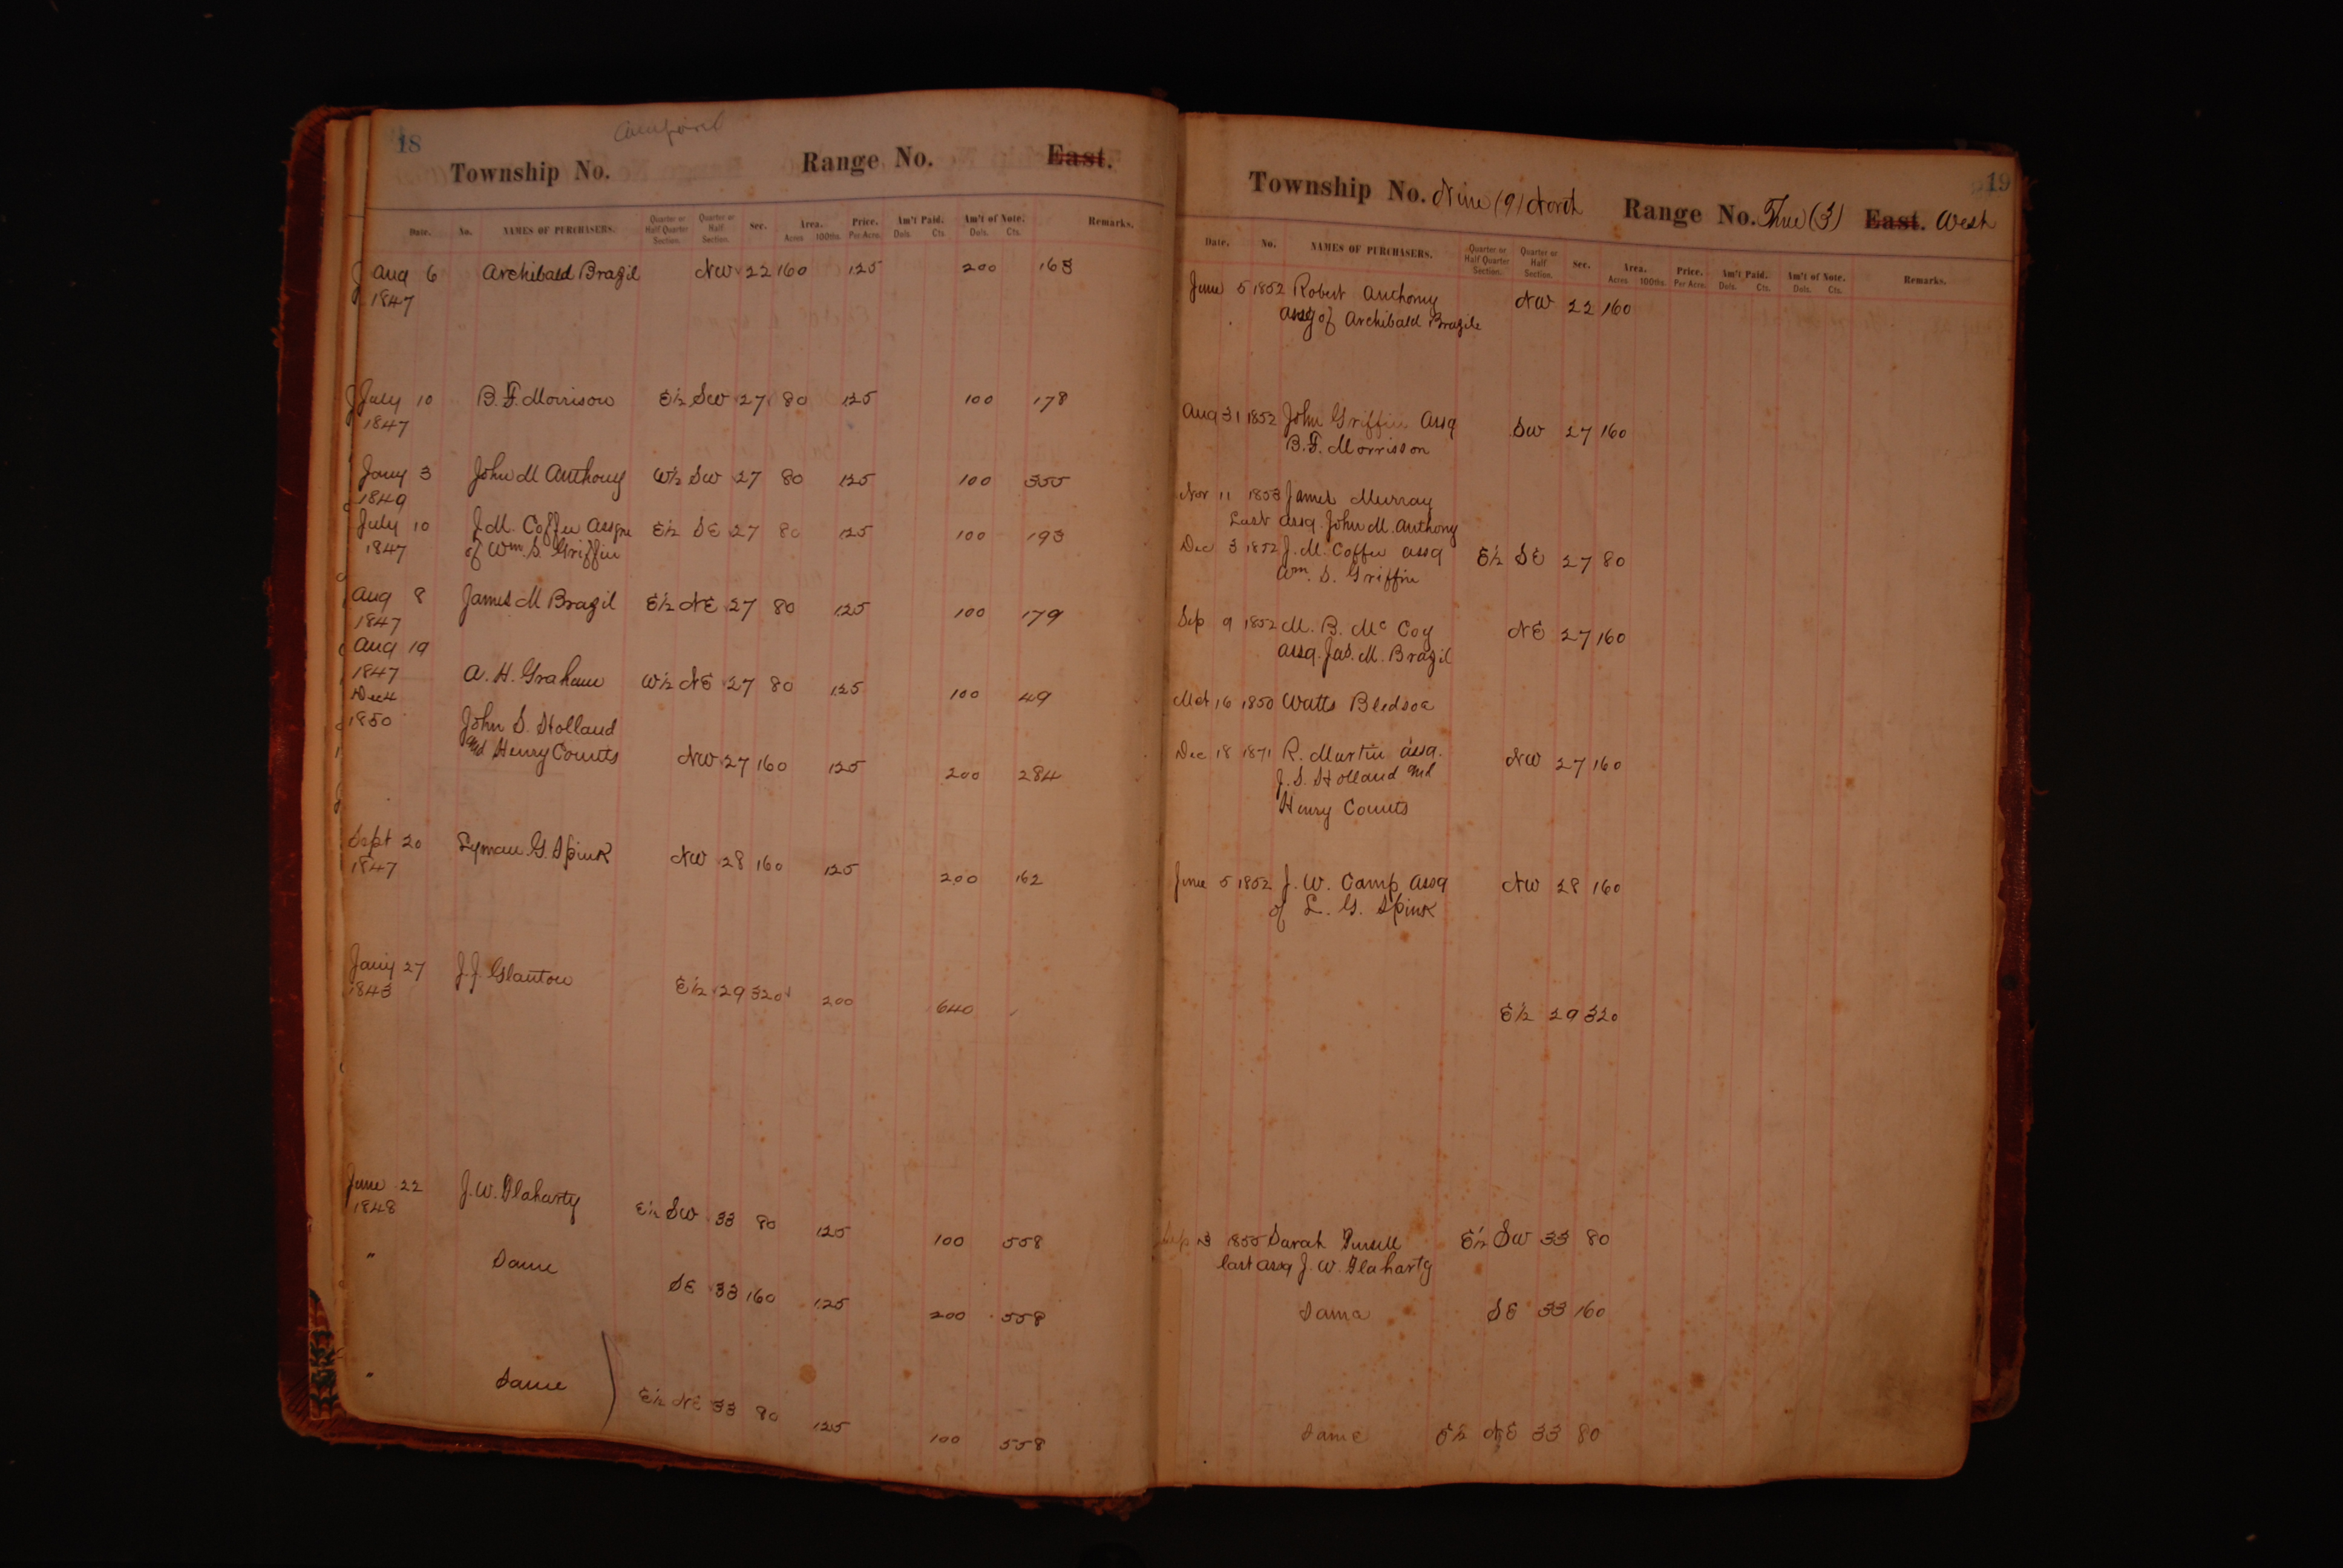 18
Township No. Range No. East.
Date. No. NAMES OF PURCHASERS. Quarter or Half Quarter Section. Quarter or Half Section. Sec. Area. Acres 100ths. Price. Per Acre. Am't Paid. Dols. Cts. Am't of Note. Dols. Cts. Remarks.
Aug 6 Archibald Brazil NW 22 160 125 200 163
1847
July 10 B. F. Morrison E½ SW 27 80 125 100 178
1847
Jany 3 John M Anthony W½ SW 27 80 125 100 355
1849
July 10 J. M. Coffee Assgne E½ SE 27 80 125 100 193
1847 of Wm. S. Griffin
Aug 8 James M Brazil E½ NE 27 80 125 100 179
1847
Aug 19
1847 A. H. Graham W½ NE 27 80 125 100 49
Dec 4
1850 John S. Holland
and Henry Counts NW 27 160 125 200 284
Sept 20 Lyman G. Spink NW 28 160 125 200 162
1847
Jany 27 J. J. Glanton E½ 29 320 200 640
1843
June 22 J. W. Flaharty E½ SW 33 80 125 100 558
1848
" Same SE 33 160 125 200 558
" Same E½ NE 33 80 125 100 558
19
Township No. Nine (9) North Range No. Three (3) East. West
Date. No. NAMES OF PURCHASERS. Quarter or Half Quarter Section. Quarter or Half Section. Sec. Area. Acres 100ths. Price. Per Acre. Am't Paid. Dols. Cts. Am't of Note. Dols. Cts. Remarks.
June 5 1852 Robert Anthony NW 22 160
assg of Archibald Brazile
Aug 31 1852 John Griffin Assg SW 27 160
B. F. Morrisson
Nov 11 1853 James Murray
Last assg. John M. Anthony
Dec 3 1852 J. M. Coffee assg E½ SE 27 80
Wm. S. Griffin
Sep 9 1852 M. B. Mc Coy NE 27 160
assg. Jas. M. Brazil
Mch 16 1850 Watts Bledsoe
Dec 18 1871 R. Martin assg. NW 27 160
J. S. Holland and
Henry Counts
June 5 1852 J. W. Camp Assg NW 28 160
of L. G. Spink
E½ 29 320
Sep 3 1855 Sarah E½ SW 33 80
last assg J. W. Flaharty
Same SE 33 160
Same E½ NE 33 80